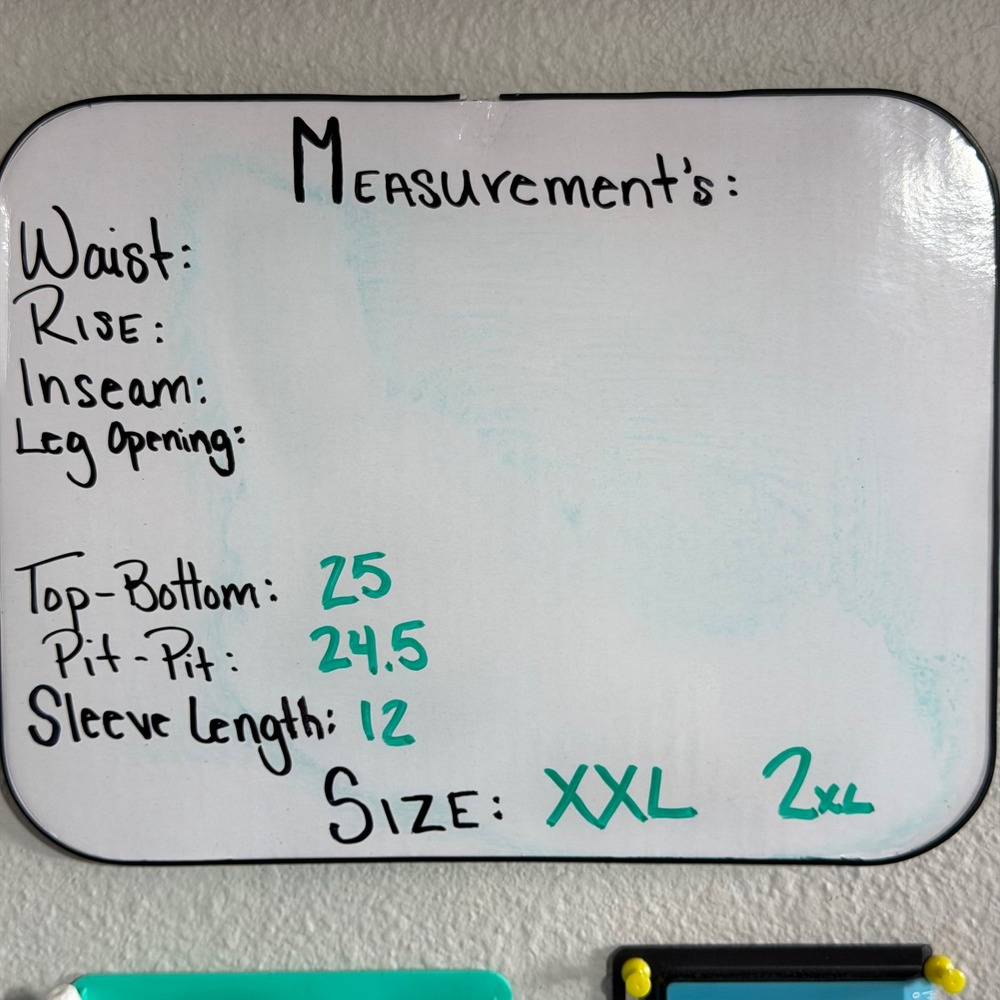 MEASurement's:
Waist:
RISE:
Inseam:
Leg Opening:
Top-Bottom: 25
Pit-Pit: 24.5
Sleeve Length: 12
SIZE: XXL 2XL